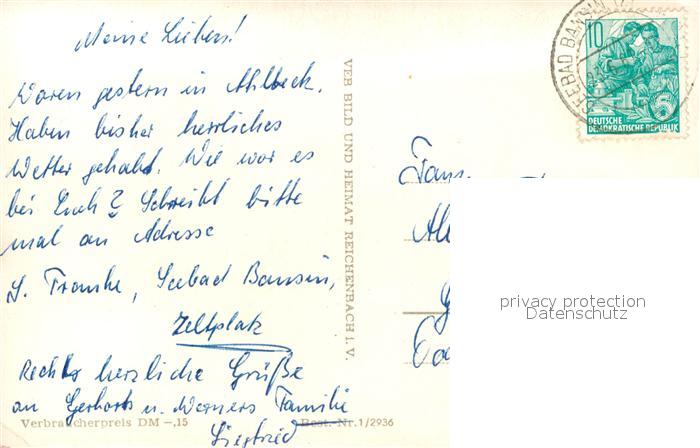 Meine Lieben!
Waren gestern in Ahlbeck.
Haben bisher herrliches
Wetter gehabt. Wie war es
bei Euch? Schreibt bitte
mal an Adresse
S. Franke, Seebad Bansin,
Zeltplatz
Recht herzliche Grüße
an Gerhards u. Werners Familie
Siegfried
Verbraucherpreis DM –,15
Best.-Nr. 1/2936
VEB BILD UND HEIMAT REICHENBACH i. V.
SEEBAD BANSIN
10
5
DEUTSCHE
DEMOKRATISCHE REPUBLIK
Fam.
privacy protection
Datenschutz